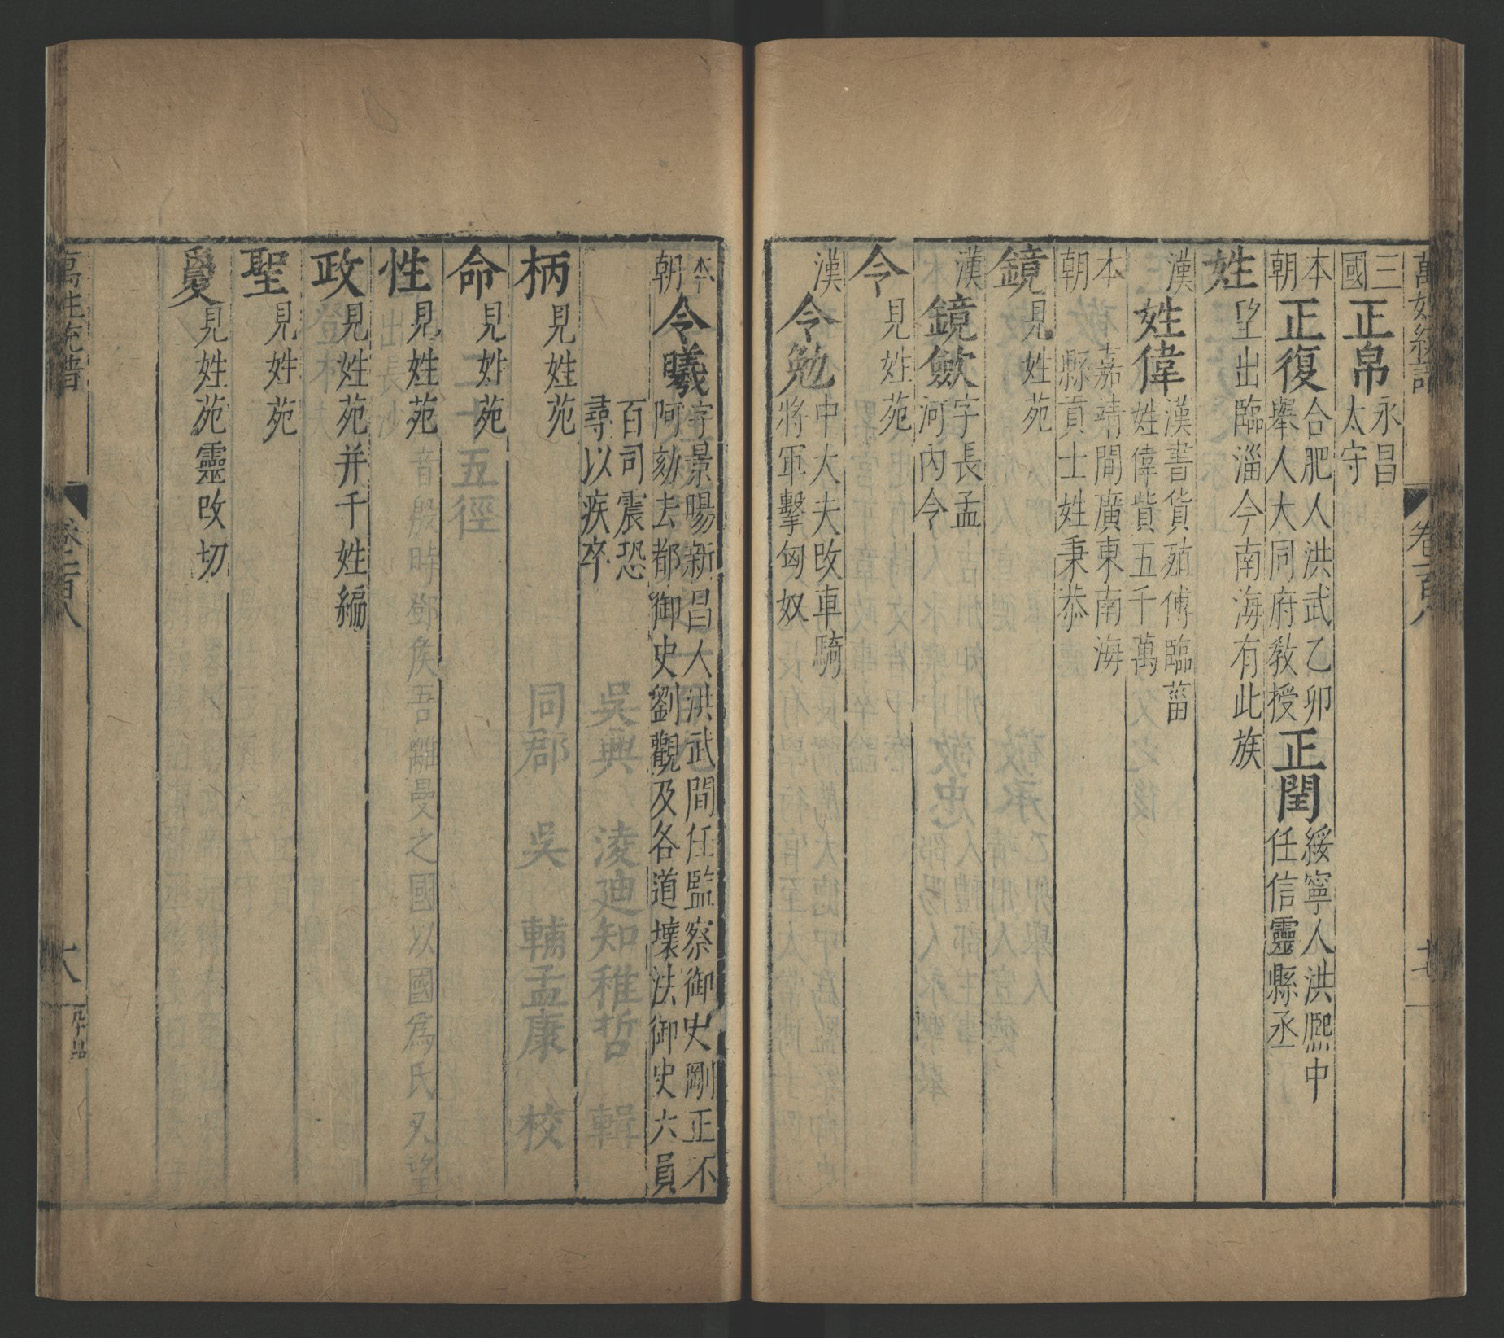 三國 正帛 永昌太守
本朝 正復 合肥人洪武乙卯舉人大同府教授 正閏 綏寧人洪熙中任信靈縣丞
姓 望出臨淄今南海有此族
漢 姓偉 漢書貨殖傅臨菑姓偉貲五千萬
本朝 嘉靖間廣東南海縣貢士姓秉恭
鏡 見姓苑
漢 鏡斂 字長孟河內令
令 見姓苑
漢 令勉 中大夫攺車騎將軍擊匈奴
本朝 令曦 字景暘新昌人洪武間任監察御史剛正不阿劾去都御史劉觀及各道壞法御史六員
百司震恐尋以疾卒
柄 見姓苑
命 見姓苑
性 見姓苑
政 見姓苑并千姓編
聖 見姓苑
敻 見姓苑靈攺切
萬姓統譜 卷一百八